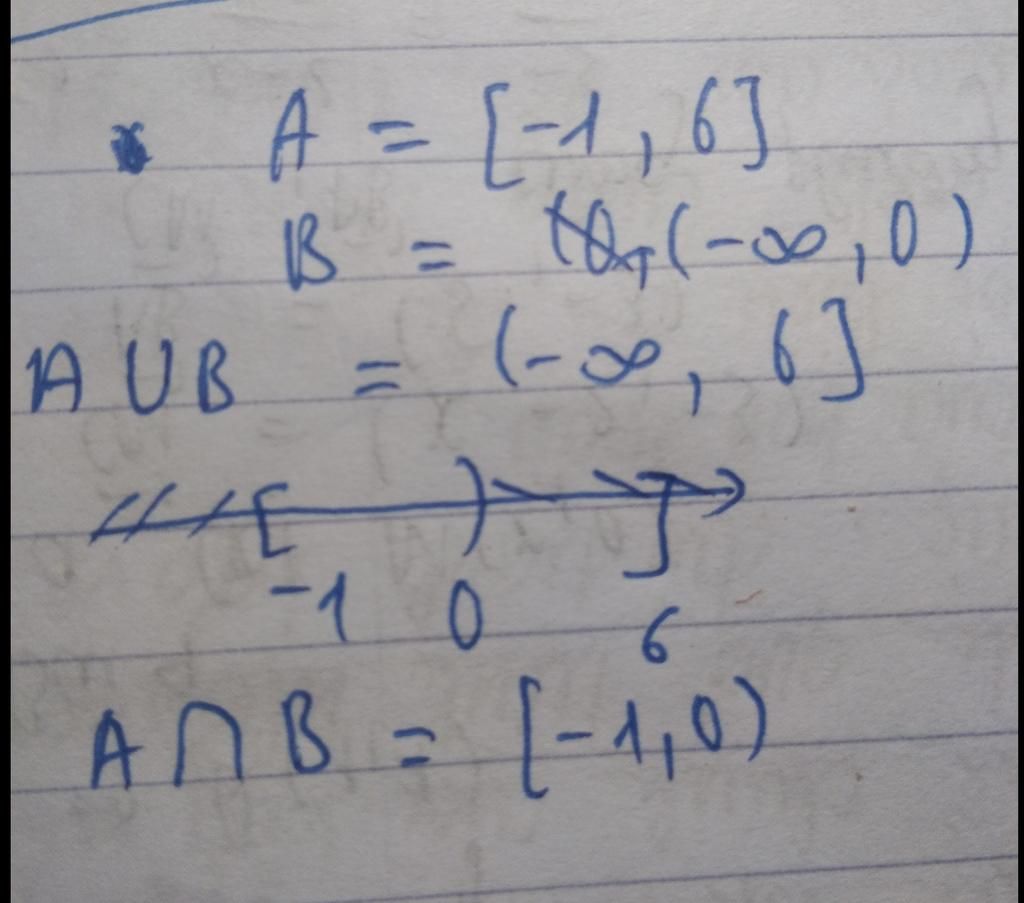 A = [-1, 6]
B = (-∞, 0)
A ∪ B = (-∞, 6]
[ ) ]
-1 0 6
A ∩ B = [-1, 0)